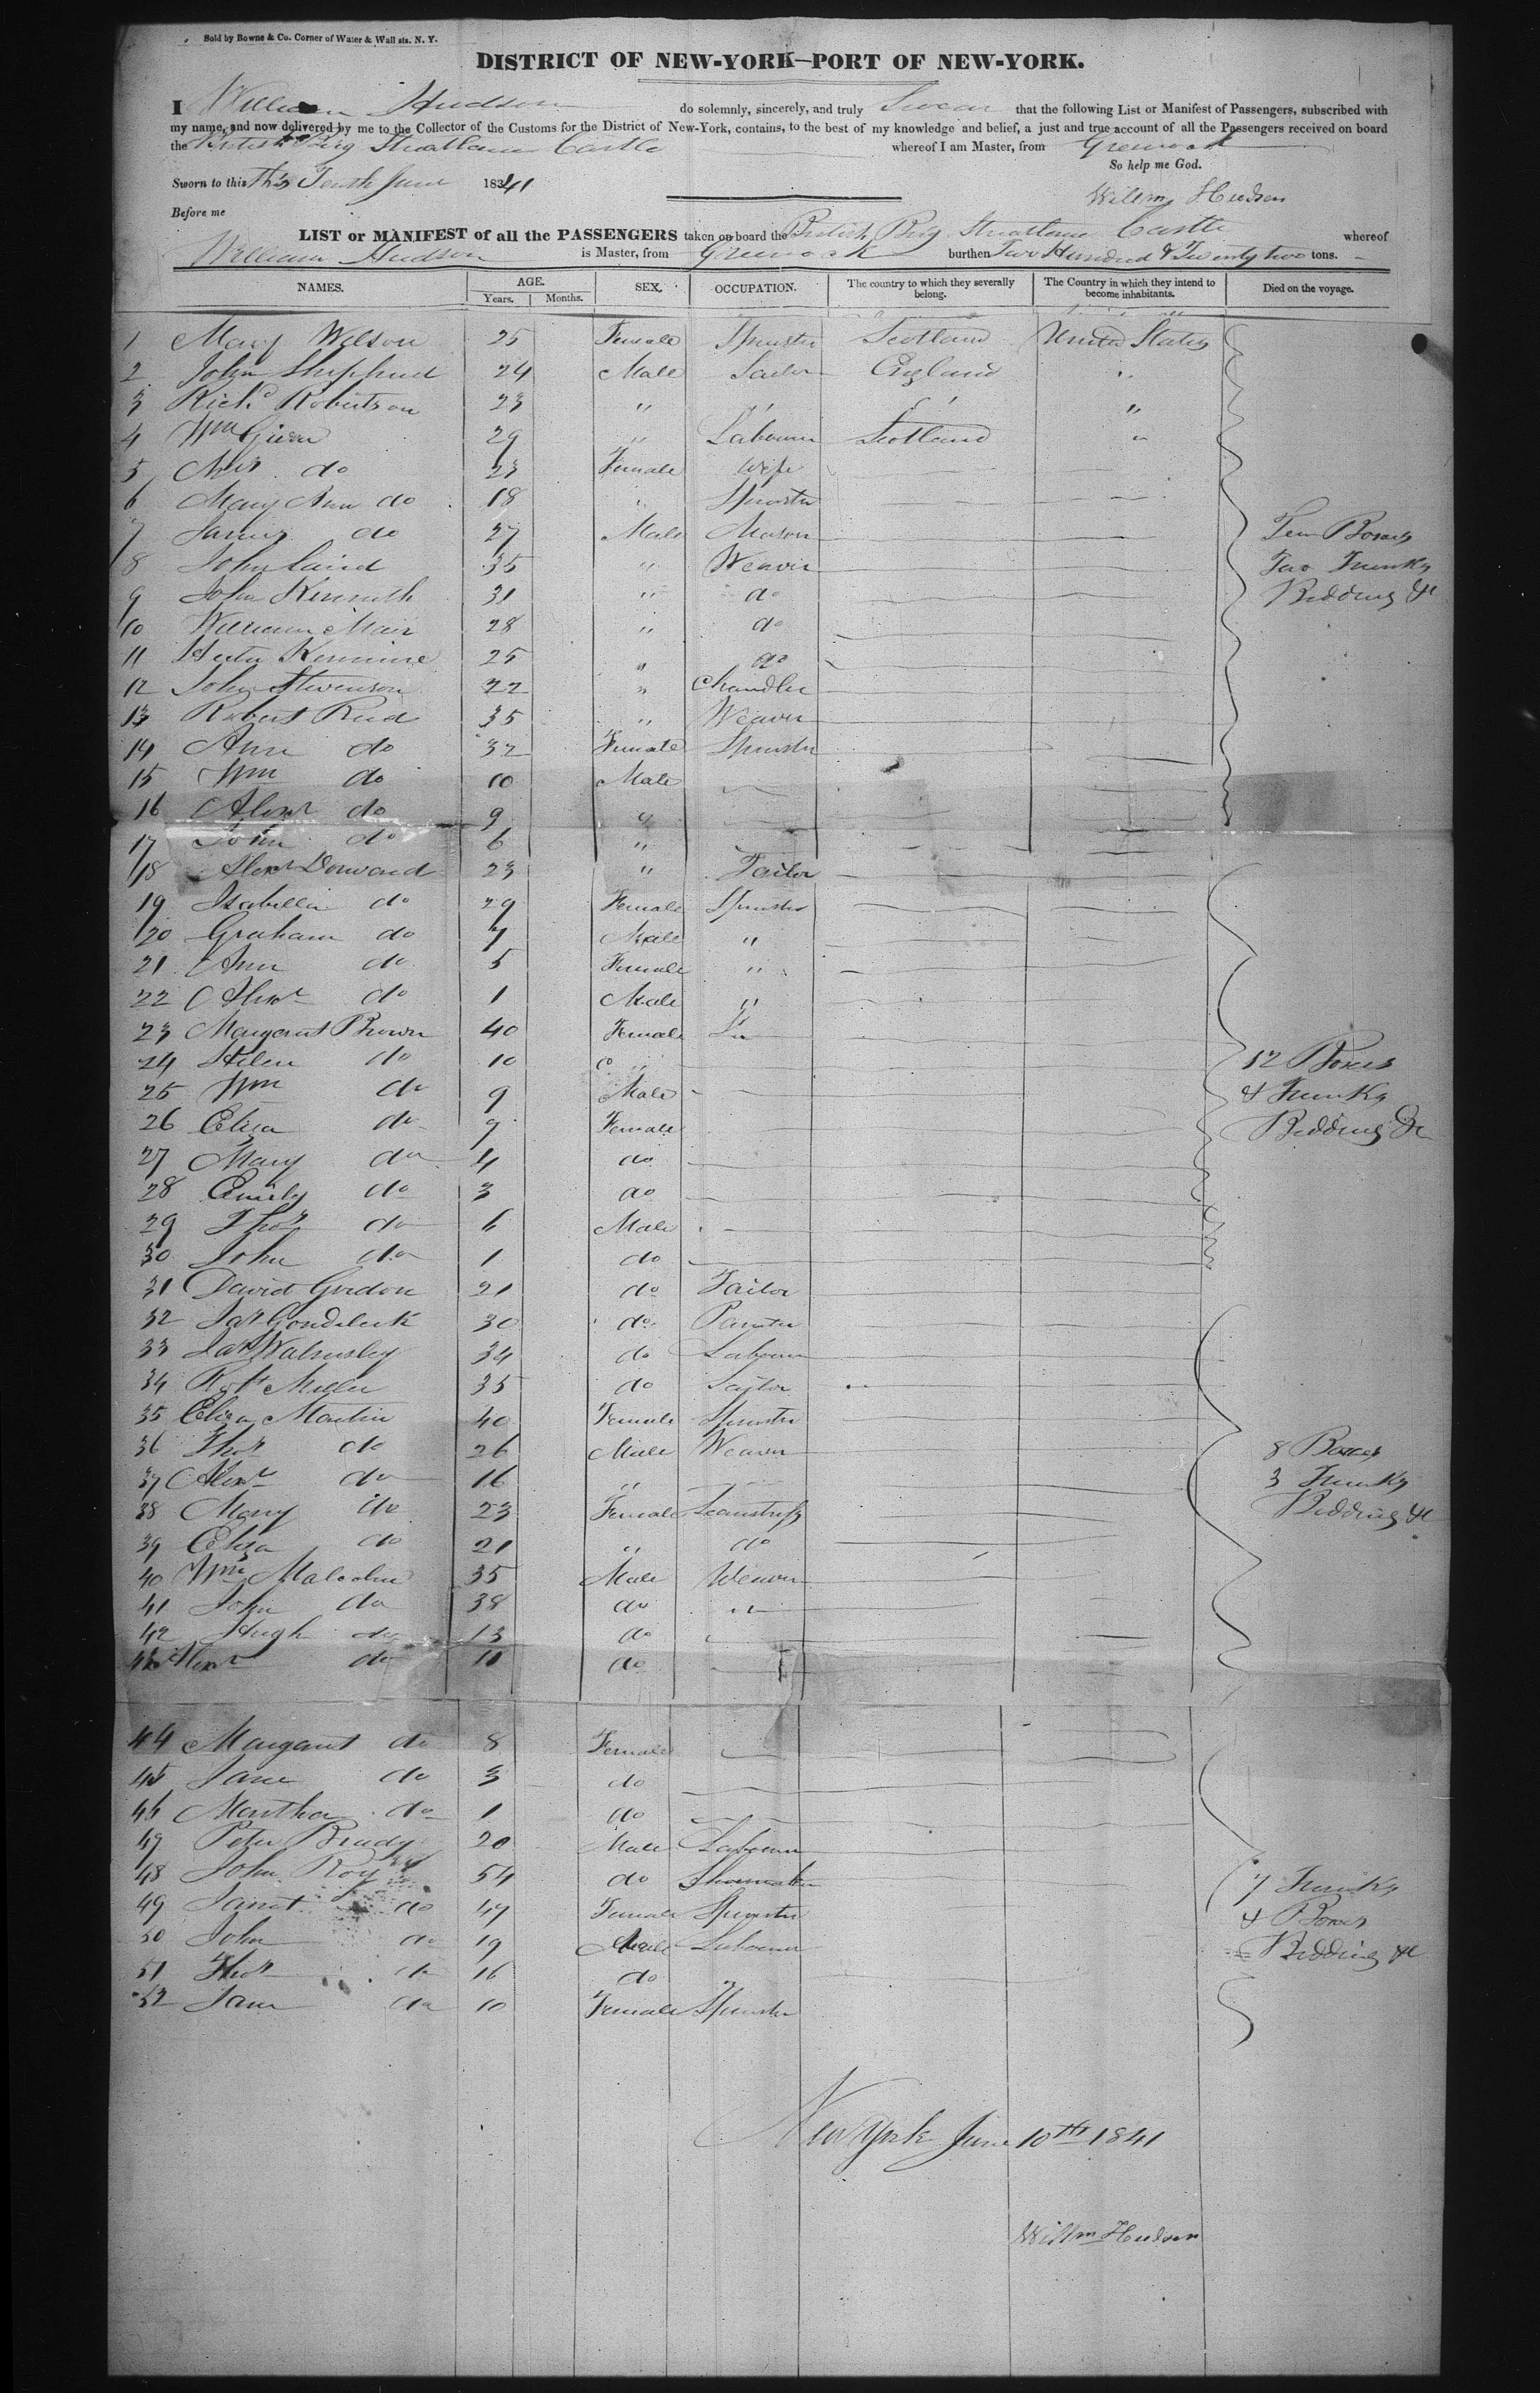 Sold by Bowne & Co. Corner of Water & Wall sts. N. Y.
DISTRICT OF NEW-YORK—PORT OF NEW-YORK.
I William Hudson do solemnly, sincerely, and truly Swear that the following List or Manifest of Passengers, subscribed with
my name, and now delivered by me to the Collector of the Customs for the District of New-York, contains, to the best of my knowledge and belief, a just and true account of all the Passengers received on board
the British Brig Castle whereof I am Master, from Greenock
So help me God.
Sworn to this this Tenth June 1841
Willm Hudson
Before me
LIST or MANIFEST of all the PASSENGERS taken on board the British Brig Castle whereof
William Hudson is Master, from Greenock burthen Two Hundred & Twenty two tons.
NAMES. AGE. SEX. OCCUPATION. The country to which they severally belong. The Country in which they intend to become inhabitants. Died on the voyage.
Years. Months.
1 Mary Wilson 25 Female Spinster Scotland United States
2 John Shephud 24 Male Sailor England "
3 Richd Robertson 23 " " " "
4 Wm 29 " Labourer Scotland "
5 Mrs do 23 Female Wife
6 Mary Ann do 18 " Spinster
7 James do 27 Male Mason Ten Boxes
8 John Laird 35 " Weaver Two Trunks
9 John 31 " do Bedding &c
10 William Mair 28 " do
11 25 " do
12 John Stevenson 22 " Chandler
13 Robert Reid 35 " Weaver
14 Ann do 32 Female Spinster
15 Wm do 10 Male
16 Alexr do 9 "
17 John do 6 "
18 Alexr Dorward 23 " Tailor
19 Isabella do 29 Female Spinster
20 Graham do 7 Male "
21 Ann do 5 Female "
22 Alexr do 1 Male "
23 Margaret Brown 40 Female
24 Helen do 10 " 12 Boxes
25 Wm do 9 Male 4 Trunks
26 Eliza do 7 Female Bedding &c
27 Mary do 4 do
28 Emily do 3 do
29 Thos do 6 Male
30 John do 1 do
31 David Gordon 21 do Tailor
32 Jas 30 do Painter
33 Jas Walmsley 34 do Labourer
34 Robt Miller 35 do Sailor
35 Eliza Martin 40 Female Spinster
36 Thos do 26 Male Weaver 8 Boxes
37 Alexr do 16 " 3 Trunks
38 Mary do 23 Female Seamstress Bedding &c
39 Eliza do 21 " do
40 Wm Malcolm 35 Male Weaver
41 John do 38 do "
42 Hugh do 13 do
43 Alexr do 10 do
44 Margaret do 8 Female
45 Jane do 3 do
46 Martha do 1 do
47 Peter Brady 20 Male Labourer
48 John Roy 54 do Shoemaker 7 Trunks
49 Janet do 49 Female Spinster 4 Boxes
50 John do 19 Male Labourer Bedding &c
51 Thos do 16 do
52 Jane do 10 Female Spinster
New York June 10th 1841
Willm Hudson